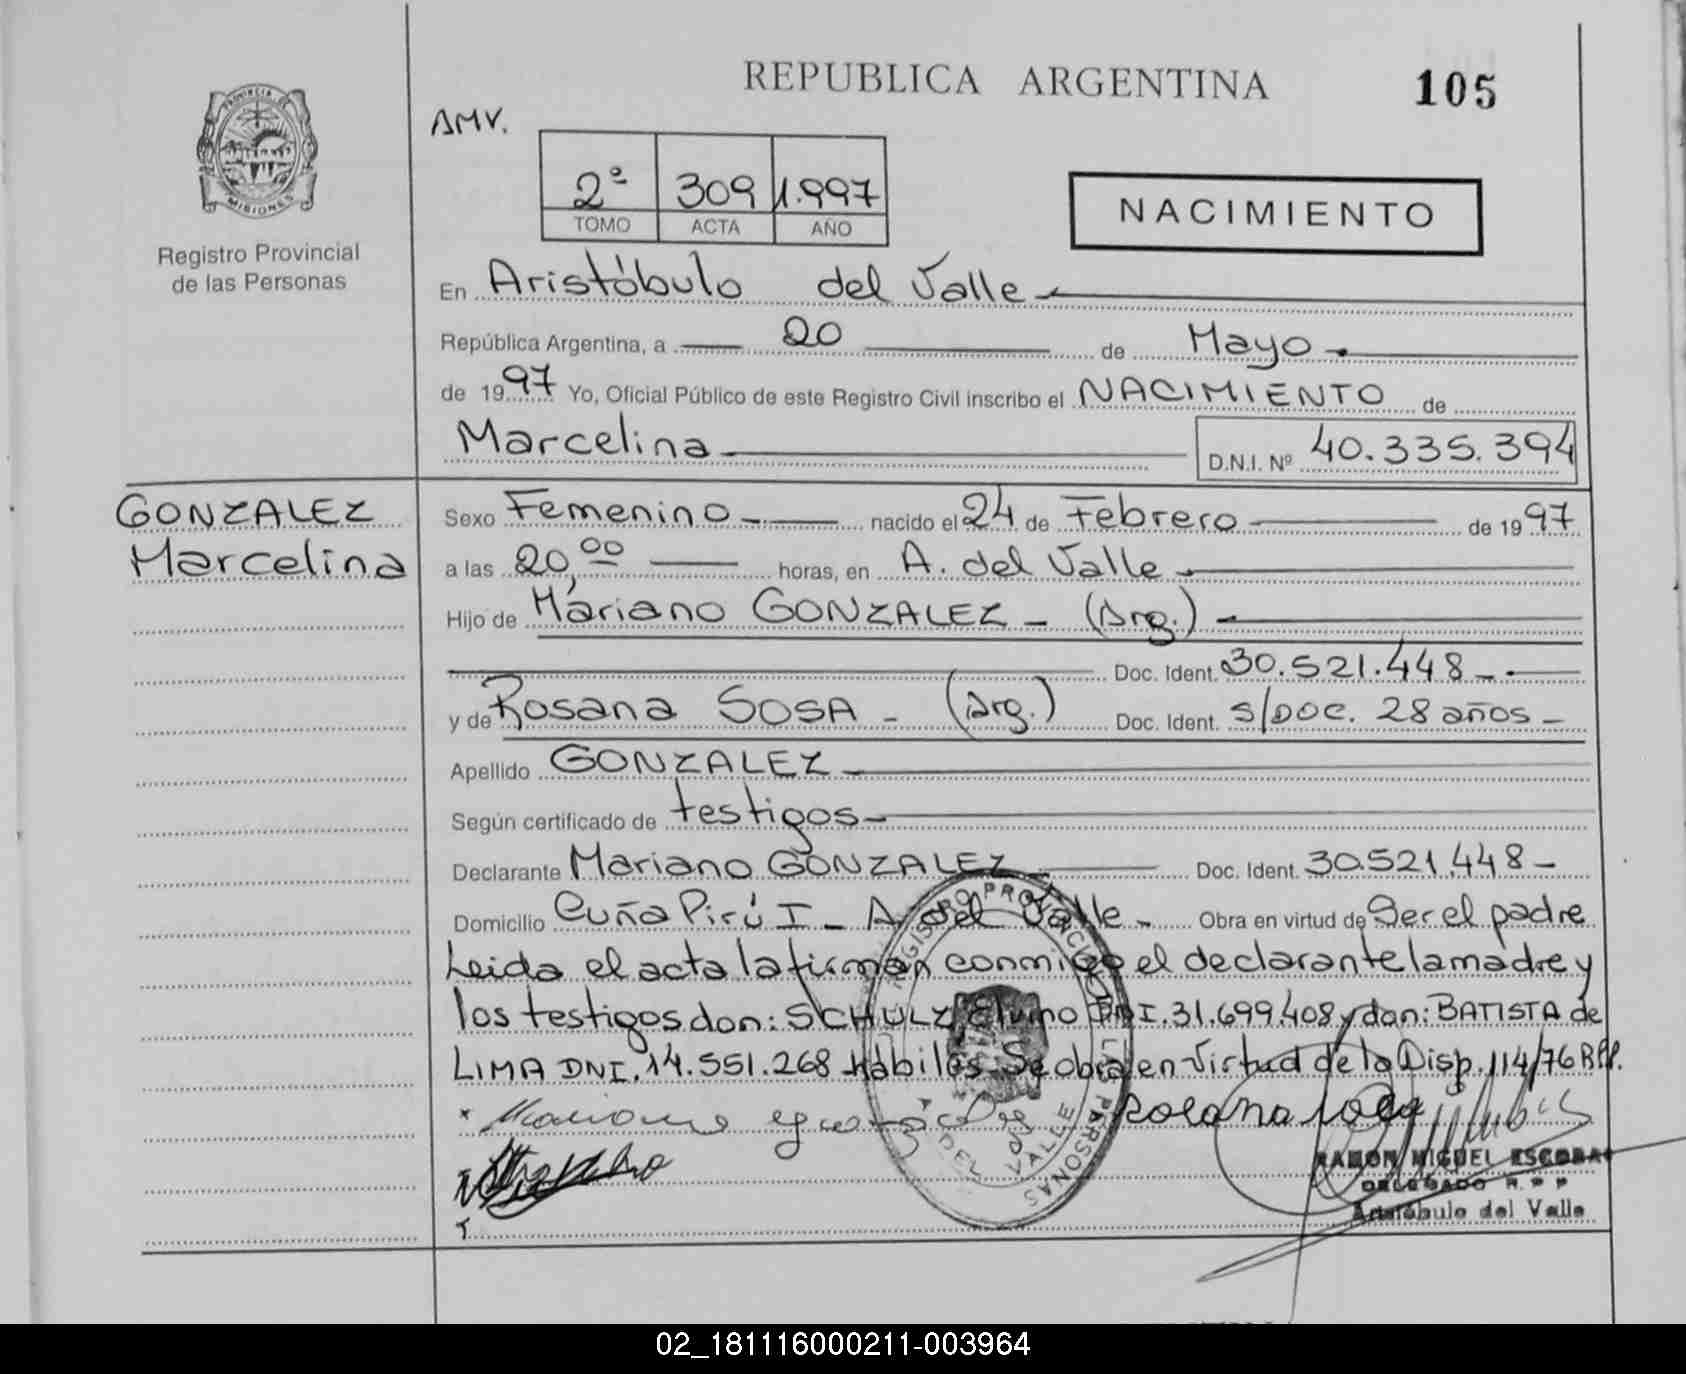 REPUBLICA ARGENTINA
105
PROVINCIA DE
MISIONES
Registro Provincial
de las Personas
AMV.
2º 309 1.997
TOMO ACTA AÑO
NACIMIENTO
En Aristóbulo del Valle
República Argentina, a 20 de Mayo
de 1997 Yo, Oficial Público de este Registro Civil inscribo el NACIMIENTO de
Marcelina
D.N.I. Nº 40.335.394
GONZALEZ
Marcelina
Sexo Femenino nacido el 24 de Febrero de 1997
a las 20,00 horas, en A. del Valle
Hijo de Mariano GONZALEZ - (Arg.)
Doc. Ident. 30.521.448
y de Rosana SOSA - (Arg.) Doc. Ident. S/DOC. 28 años
Apellido GONZALEZ
Según certificado de testigos
Declarante Mariano GONZALEZ Doc. Ident. 30.521.448
Domicilio Cuña Pirú I - A. del Valle Obra en virtud de Ser el padre
Leida el acta la firman conmigo el declarante la madre y
los testigos don: SCHULZ, DNI. 31.699.408 y don: BATISTA de
LIMA DNI. 14.551.268 Hábiles. Se obra en virtud de la Disp. 114/76 RPP.
RAMON MIGUEL ESCOBAR
DELEGADO R. P. P
Aristóbulo del Valle
REGISTRO PROVINCIAL DE LAS PERSONAS
A. DEL VALLE
02_181116000211-003964